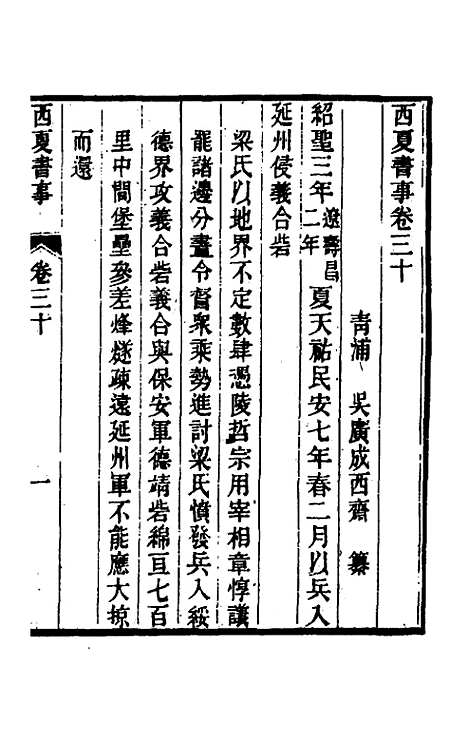 西夏書事卷三十
青浦 吳廣成西齋 纂
紹聖三年遼壽昌二年夏天祐民安七年春二月以兵入
延州侵義合砦
梁氏以地界不定數肆憑陵哲宗用宰相章惇議
罷諸邊分畫令督衆乘勢進討梁氏憤發兵入綏
德界攻義合砦義合與保安軍德靖砦綿亘七百
里中間堡壘參差烽燧疎遠延州軍不能應大掠
而還
西夏書事 卷三十 一